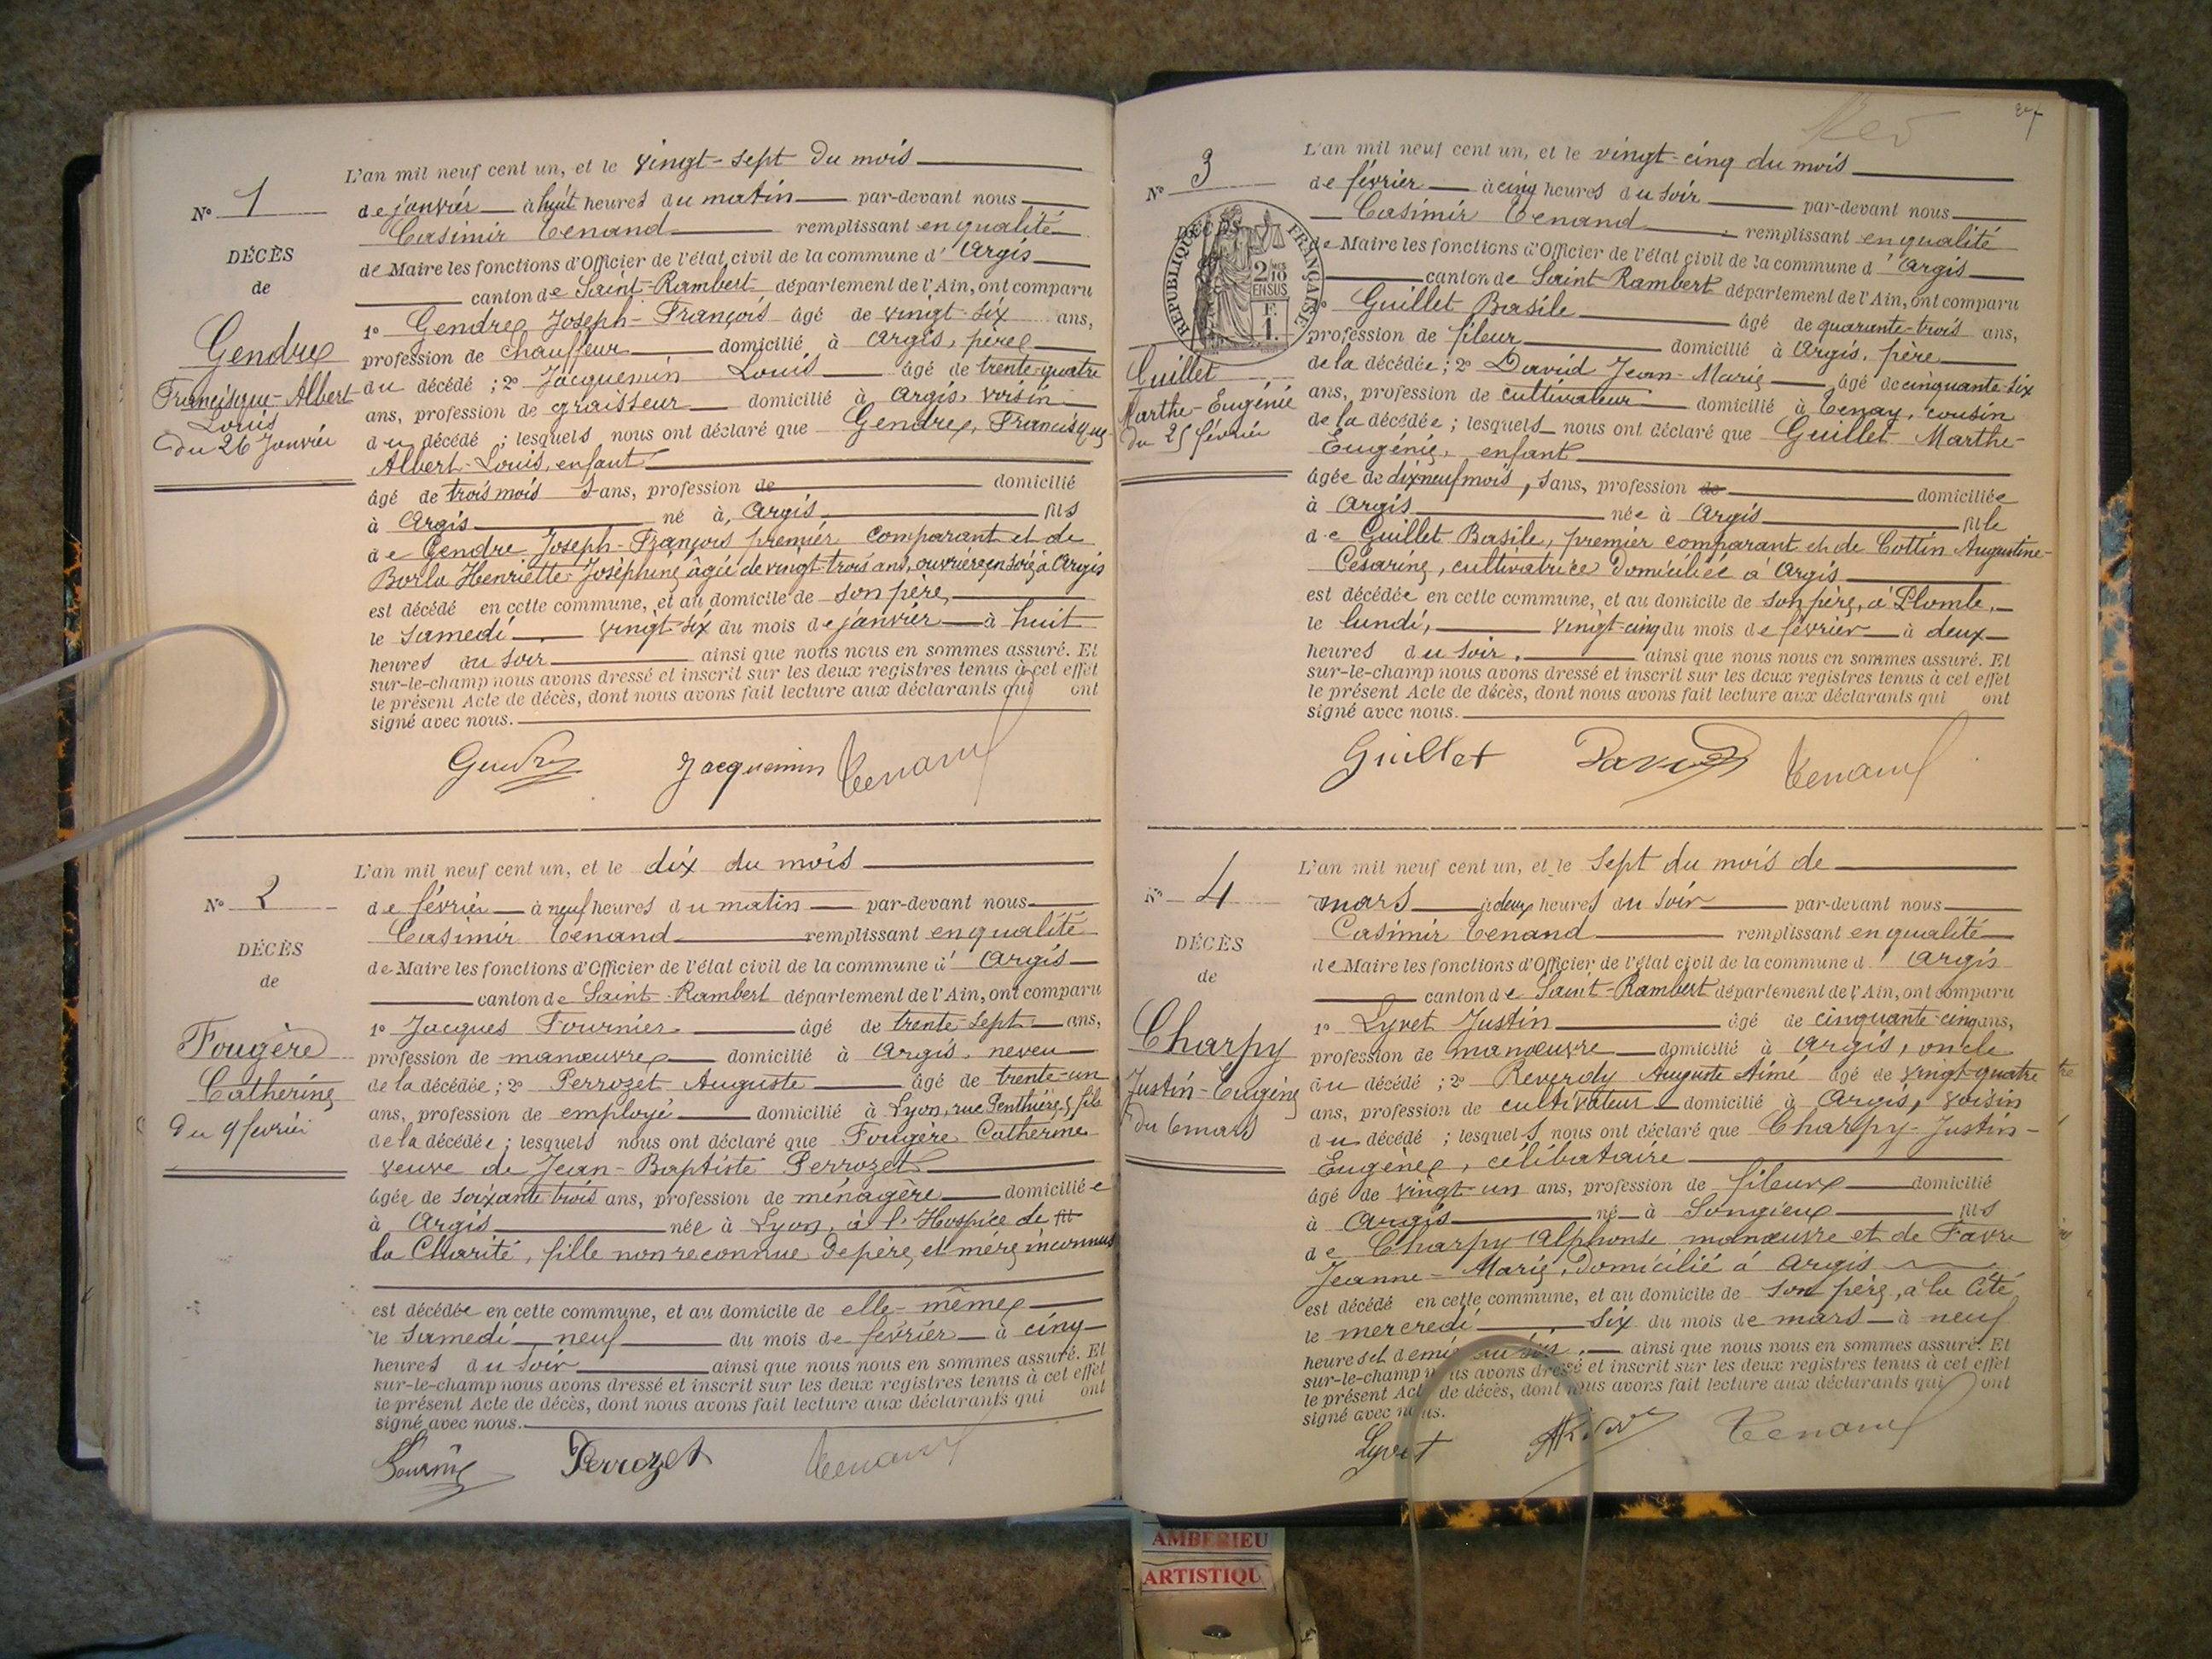 L'an mil neuf cent un, et le vingt-sept du mois
N° 1
de janvier à huit heures du matin par-devant nous
Casimir Tenand remplissant en qualité
DÉCÈS
de Maire les fonctions d'Officier de l'état civil de la commune d'Argis
de
canton de Saint-Rambert département de l'Ain, ont comparu
Gendre
Francisque-Albert
Louis
du 26 Janvier
1° Gendre Joseph-François âgé de vingt-six ans,
profession de chauffeur domicilié à Argis, père
du décédé ; 2° Jacquemin Louis âgé de trente-quatre
ans, profession de graisseur domicilié à Argis, voisin
du décédé ; lesquels nous ont déclaré que Gendre, Francisque
Albert-Louis, enfant
âgé de trois mois sans, profession de domicilié
à Argis né à, Argis fils
de Gendre Joseph-François premier comparant et de
Borla Henriette-Joséphine âgée de vingt-trois ans, ouvrière en soie à Argis
est décédé en cette commune, et au domicile de son père,
le samedi vingt-six du mois de janvier à huit
heures du soir ainsi que nous nous en sommes assuré. Et
sur-le-champ nous avons dressé et inscrit sur les deux registres tenus à cet effet
le présent Acte de décès, dont nous avons fait lecture aux déclarants qui ont
signé avec nous.
Gendre Jacquemin Tenand
L'an mil neuf cent un, et le dix du mois
N° 2
de février à neuf heures du matin par-devant nous
Casimir Tenand remplissant en qualité
DÉCÈS
de Maire les fonctions d'Officier de l'état civil de la commune d'Argis
de
canton de Saint-Rambert département de l'Ain, ont comparu
Fougère
Catherine
du 9 février
1° Jacques Fournier âgé de trente-sept ans,
profession de manœuvre domicilié à Argis, neveu
de la décédée ; 2° Perrozet Auguste âgé de trente-un
ans, profession de employé domicilié à Lyon, rue Penthière, fils
de la décédée ; lesquels nous ont déclaré que Fougère Catherine
veuve de Jean-Baptiste Perrozet
âgée de soixante trois ans, profession de ménagère domiciliée
à Argis née à Lyon, à l'Hospice de fil
la Charité, fille non reconnue de père et mère inconnus
est décédée en cette commune, et au domicile de elle-même
le samedi neuf du mois de février à cinq
heures du soir ainsi que nous nous en sommes assuré. Et
sur-le-champ nous avons dressé et inscrit sur les deux registres tenus à cet effet
le présent Acte de décès, dont nous avons fait lecture aux déclarants qui ont
signé avec nous.
Perrozet Tenand
L'an mil neuf cent un, et le vingt-cinq du mois
N° 3
de février à cinq heures du soir par-devant nous
Casimir Tenand remplissant en qualité
DÉCÈS
RÉPUBLIQUE FRANÇAISE
2/10 EN SUS
F. 1.
de Maire les fonctions d'Officier de l'état civil de la commune d'Argis
canton de Saint-Rambert département de l'Ain, ont comparu
Guillet
Marthe-Eugénie
du 25 février
Guillet Basile âgé de quarante-trois ans,
profession de fileur domicilié à Argis, père
de la décédée ; 2° David Jean-Marie âgé de cinquante-six
ans, profession de cultivateur domicilié à Tenay, cousin
de la décédée ; lesquels nous ont déclaré que Guillet Marthe-
Eugénie, enfant
âgée de dix neuf mois, sans, profession de domiciliée
à Argis née à Argis fille
de Guillet Basile, premier comparant et de Cottin Augustine-
Césarine, cultivatrice domiciliée à Argis
est décédée en cette commune, et au domicile de son père, à Plomb,
le lundi, vingt-cinq du mois de février à deux
heures du soir, ainsi que nous nous en sommes assuré. Et
sur-le-champ nous avons dressé et inscrit sur les deux registres tenus à cet effet
le présent Acte de décès, dont nous avons fait lecture aux déclarants qui ont
signé avec nous.
Guillet David Tenand
L'an mil neuf cent un, et le sept du mois de
N° 4
mars à deux heures du soir par-devant nous
Casimir Tenand remplissant en qualité
DÉCÈS
de Maire les fonctions d'Officier de l'état civil de la commune d'Argis
de
canton de Saint-Rambert département de l'Ain, ont comparu
Charpy
Justin-Eugène
du 6 mars
1° Lyvet Justin âgé de cinquante-cinq ans,
profession de manœuvre domicilié à Argis, oncle
du décédé ; 2° Reverdy Auguste Aimé âgé de vingt-quatre
ans, profession de cultivateur domicilié à Argis, voisin
du décédé ; lesquels nous ont déclaré que Charpy-Justin-
Eugène, célibataire
âgé de vingt-un ans, profession de fileur domicilié
à Argis né à Songieu fils
de Charpy Alphonse manœuvre et de Favre
Jeanne-Marie, domicilié à Argis
est décédé en cette commune, et au domicile de son père, à la Cité
le mercredi six du mois de mars à neuf
heures et demie du soir, ainsi que nous nous en sommes assuré. Et
sur-le-champ nous avons dressé et inscrit sur les deux registres tenus à cet effet
le présent Acte de décès, dont nous avons fait lecture aux déclarants qui ont
signé avec nous.
Lyvet Tenand
AMBERIEU
ARTISTIQU